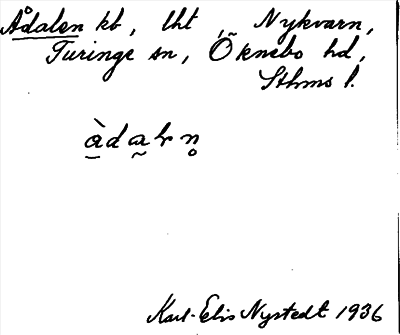 Ådalen kb, lht, Nykvarn,
Turinge sn, Öknebo hd,
Sthms l.
àdaln̥
Karl-Elis Nystedt 1936